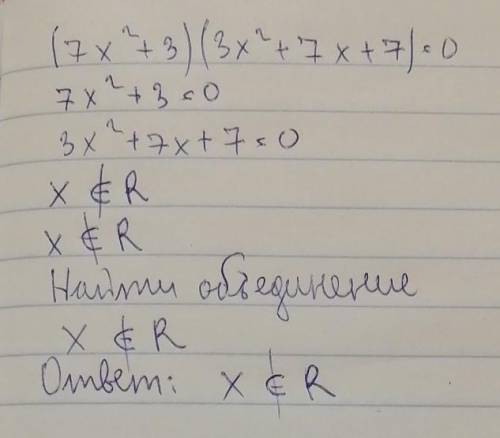 (7x²+3)(3x²+7x+7)=0
7x²+3=0
3x²+7x+7=0
x ∉ R
x ∉ R
Найти объединение
x ∉ R
Ответ: x ∉ R